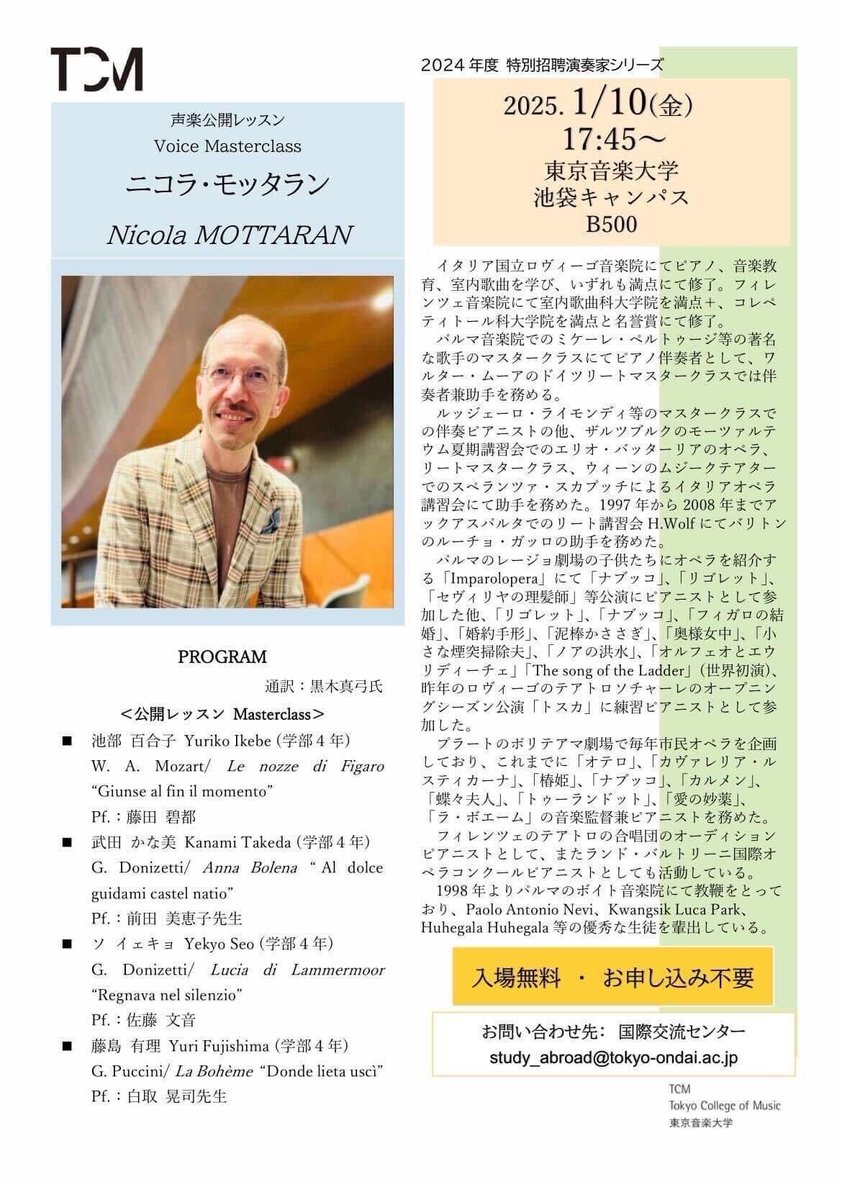 TCM
声楽公開レッスン
Voice Masterclass
ニコラ・モッタラン
Nicola MOTTARAN
PROGRAM
通訳：黒木真弓氏
＜公開レッスン Masterclass＞
■ 池部 百合子 Yuriko Ikebe (学部4年)
W. A. Mozart/ Le nozze di Figaro
“Giunse al fin il momento”
Pf.：藤田 碧都
■ 武田 かな美 Kanami Takeda (学部4年)
G. Donizetti/ Anna Bolena “Al dolce
guidami castel natio”
Pf.：前田 美恵子先生
■ ソ イェキョ Yekyo Seo (学部4年)
G. Donizetti/ Lucia di Lammermoor
“Regnava nel silenzio”
Pf.：佐藤 文音
■ 藤島 有理 Yuri Fujishima (学部4年)
G. Puccini/ La Bohème “Donde lieta uscì”
Pf.：白取 晃司先生
2024年度 特別招聘演奏家シリーズ
2025. 1/10(金)
17:45～
東京音楽大学
池袋キャンパス
B500
イタリア国立ロヴィーゴ音楽院にてピアノ、音楽教
育、室内歌曲を学び、いずれも満点にて修了。フィレ
ンツェ音楽院にて室内歌曲科大学院を満点＋、コレペ
ティトール科大学院を満点と名誉賞にて修了。
パルマ音楽院でのミケーレ・ペルトゥージ等の著名
な歌手のマスタークラスにてピアノ伴奏者として、ワ
ルター・ムーアのドイツリートマスタークラスでは伴
奏者兼助手を務める。
ルッジェーロ・ライモンディ等のマスタークラスで
の伴奏ピアニストの他、ザルツブルクのモーツァルテ
ウム夏期講習会でのエリオ・バッターリアのオペラ、
リートマスタークラス、ウィーンのムジークテアター
でのスペランツァ・スカプッチによるイタリアオペラ
講習会にて助手を務めた。1997年から2008年までア
ックアスパルタでのリート講習会 H.Wolf にてバリトン
のルーチョ・ガッロの助手を務めた。
パルマのレージョ劇場の子供たちにオペラを紹介す
る「Imparolopera」にて「ナブッコ」、「リゴレット」、
「セヴィリヤの理髪師」等公演にピアニストとして参
加した他、「リゴレット」、「ナブッコ」、「フィガロの結
婚」、「婚約手形」、「泥棒かささぎ」、「奥様女中」、「小
さな煙突掃除夫」、「ノアの洪水」、「オルフェオとエウ
リディーチェ」「The song of the Ladder」（世界初演）、
昨年のロヴィーゴのテアトロソチャーレのオープニン
グシーズン公演「トスカ」に練習ピアニストとして参
加した。
プラートのポリテアマ劇場で毎年市民オペラを企画
しており、これまでに「オテロ」、「カヴァレリア・ル
スティカーナ」、「椿姫」、「ナブッコ」、「カルメン」、
「蝶々夫人」、「トゥーランドット」、「愛の妙薬」、
「ラ・ボエーム」の音楽監督兼ピアニストを務めた。
フィレンツェのテアトロの合唱団のオーディション
ピアニストとして、またランド・バルトリーニ国際オ
ペラコンクールピアニストとしても活動している。
1998年よりパルマのボイト音楽院にて教鞭をとって
おり、Paolo Antonio Nevi、Kwangsik Luca Park、
Huhegala Huhegala 等の優秀な生徒を輩出している。
入場無料 ・ お申し込み不要
お問い合わせ先： 国際交流センター
study_abroad@tokyo-ondai.ac.jp
TCM
Tokyo College of Music
東京音楽大学